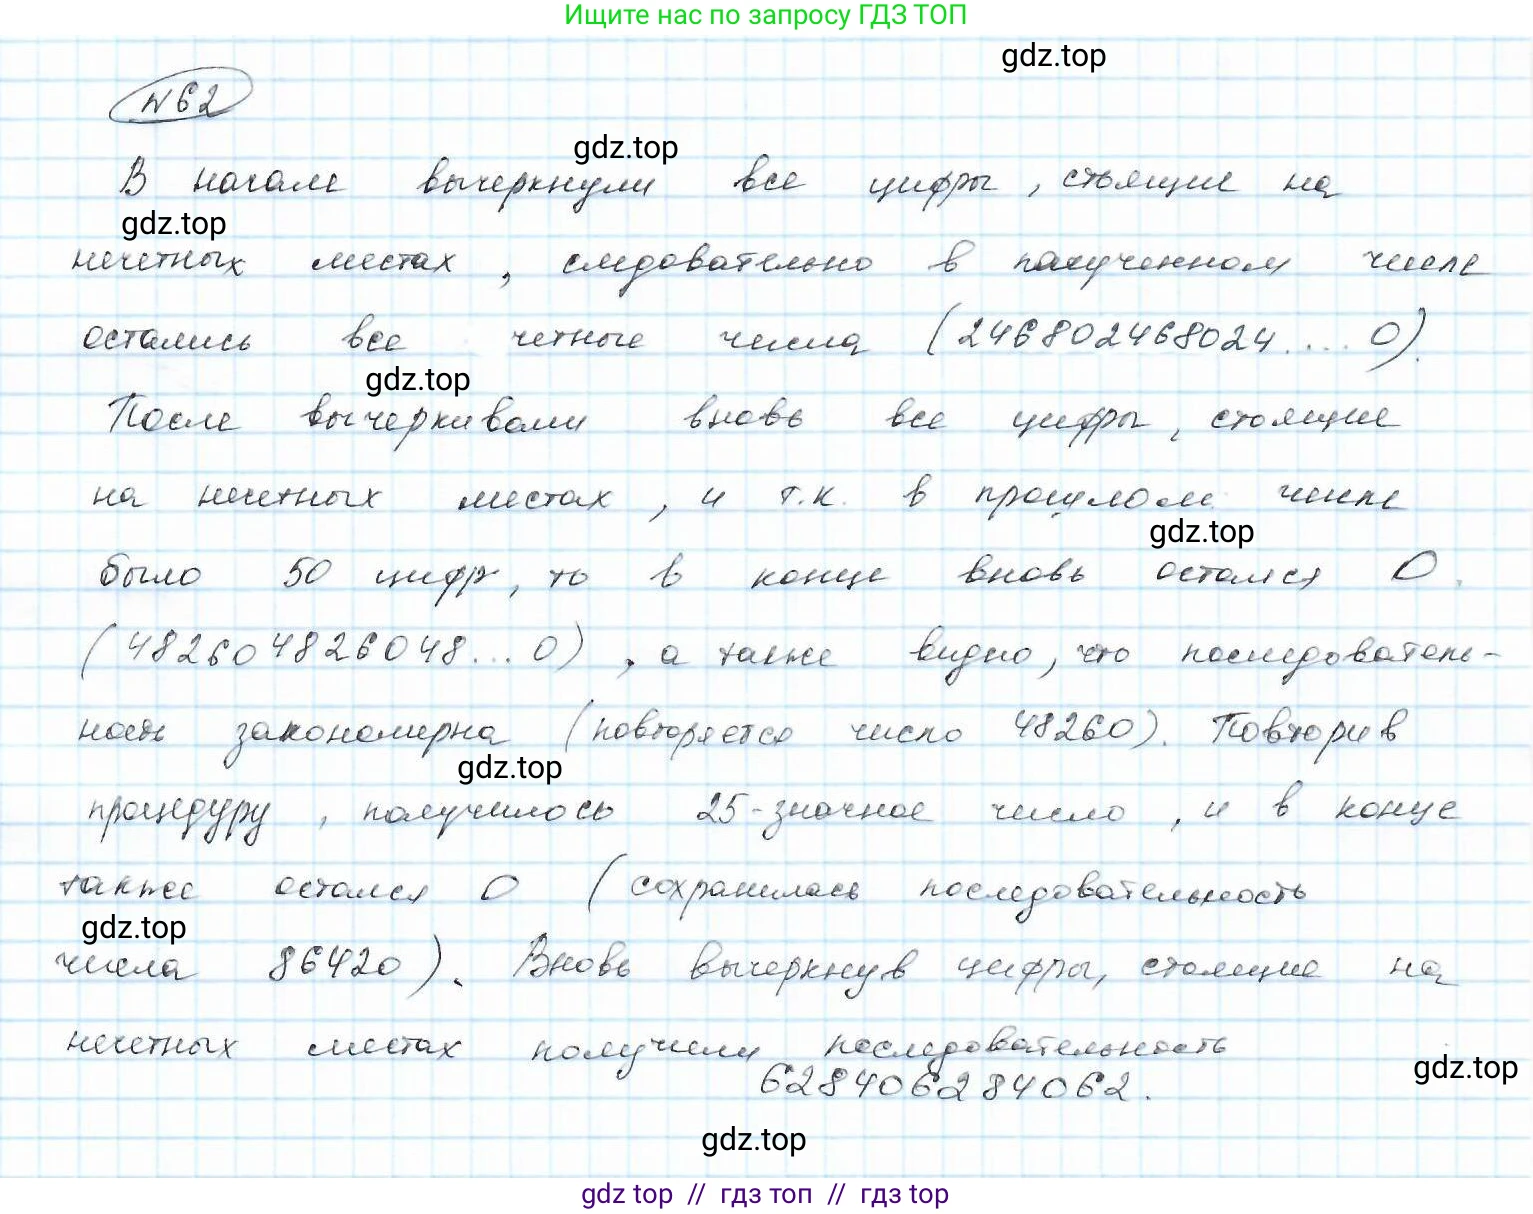 Ищите нас по запросу ГДЗ ТОП
gdz.top
№62
gdz.top
В начале вычеркнули все цифры, стоящие на
gdz.top
нечетных местах, следовательно в полученном числе
остались все четные числа (246802468024....0).
gdz.top
После вычеркивали вновь все цифры, стоящие
на нечетных местах, и т.к. в прошлом числе
gdz.top
было 50 цифр, то в конце вновь остался 0.
(482604826048...0), а также видно, что последователь-
ность закономерна (повторяется число 48260). Повторив
gdz.top
процедуру, получилось 25-значное число, и в конце
также остался 0 (сохранилась последовательность
gdz.top
числа 86420). Вновь вычеркнув цифры, стоящие на
нечетных местах получили последовательность
gdz.top
628406284062.
gdz.top
gdz top // гдз топ // гдз top